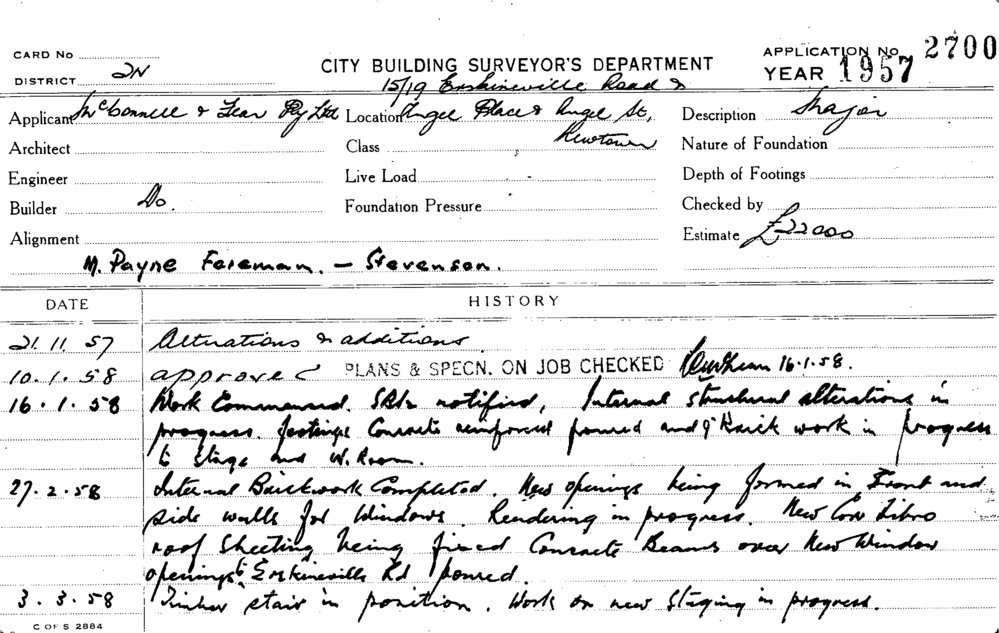 CARD No
DISTRICT 2N
CITY BUILDING SURVEYOR'S DEPARTMENT
APPLICATION No. 2700
YEAR 1957
15/19 Erskineville Road &
Applicant McConnell & Fear Pty Ltd Location Angel Place & Angel St, Description Major
Architect Class Newtown Nature of Foundation
Engineer Live Load Depth of Footings
Builder Do. Foundation Pressure Checked by
Alignment Estimate £22000
M. Payne Foreman. – Stevenson.
DATE HISTORY
21.11.57 Alterations & additions
10.1.58 approved PLANS & SPECN. ON JOB CHECKED 16.1.58.
16.1.58 Work Commenced. notified, Internal structural alterations in
progress. footings Concrete reinforced poured and Brick work in progress
to Stage and W. Room.
27.2.58 Internal Brickwork Completed. New openings being formed in Front and
side walls for Windows. Rendering in progress. New Cor Fibro
roof Sheeting being fixed Concrete Beams over New Window
openings to Erskineville Rd poured.
3.3.58 Timber stair in position. Work on new Staging in progress.
C OF S 2884